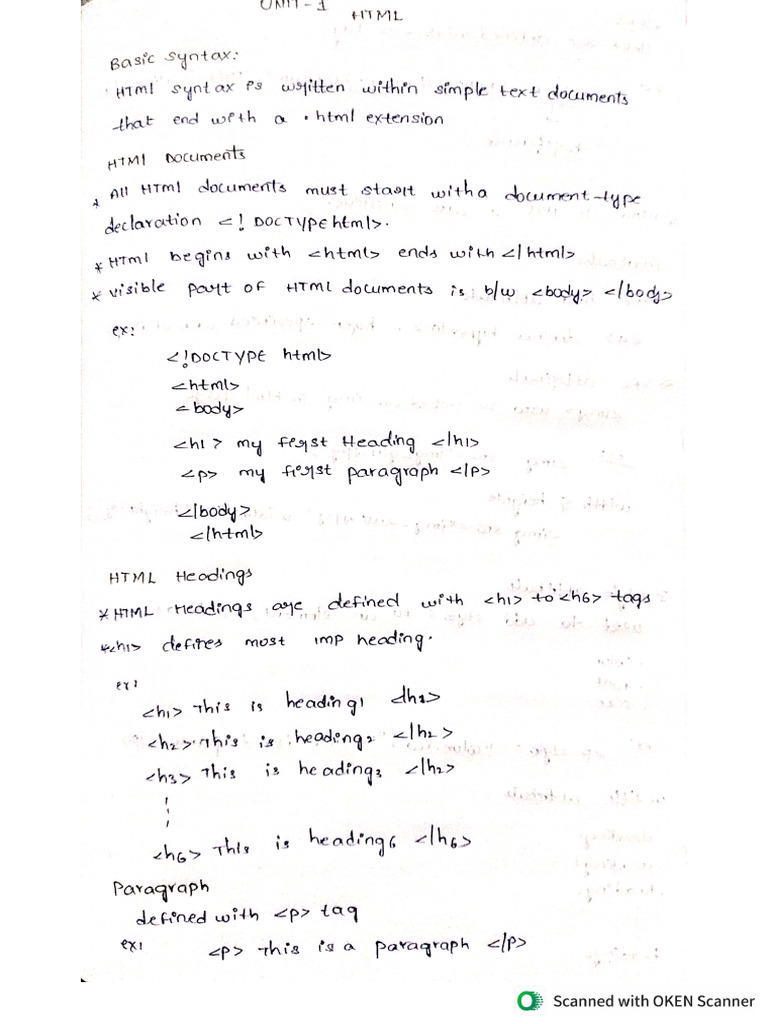 UNIT-1
HTML
Basic Syntax:
HTML syntax is written within simple text documents
that end with a .html extension
HTML Documents
* All HTML documents must start with a document-type
declaration <!DOCTYPE html>.
* HTML begins with <html> ends with </html>
* visible part of HTML documents is b/w <body> </body>
ex:
<!DOCTYPE html>
<html>
<body>
<h1> my first Heading </h1>
<p> my first paragraph </p>
</body>
</html>
HTML Headings
* HTML Headings are defined with <h1> to <h6> tags
* <h1> defines most imp heading.
ex:
<h1> This is heading1 </h1>
<h2> This is heading2 </h2>
<h3> This is heading3 </h2>
<h6> This is heading6 </h6>
Paragraph
defined with <p> tag
ex:
<p> This is a paragraph </p>
Scanned with OKEN Scanner